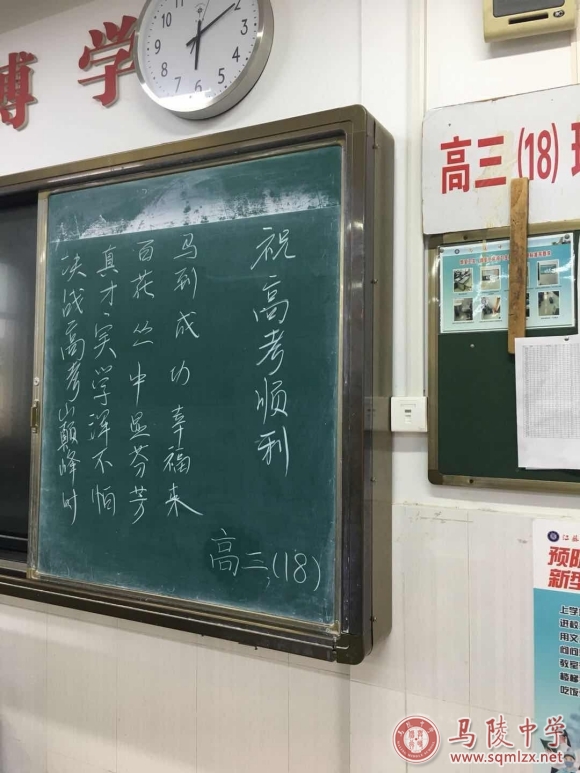 博学
高三(18)班
祝高考顺利
马到成功幸福来
百花丛中显芬芳
真才实学浑不怕
决战高考山巅峰时
高三(18)
预防
新型
上学
进校
用文
教室
楼梯
吃饭
马陵中学
www.sqmlzx.net